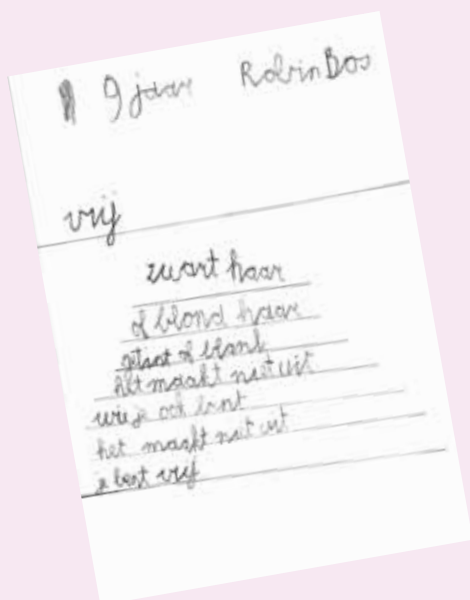 9 jaar Robin Bos
vrij
zwart haar
of blond haar
getint of blank
het maakt niet uit
wie je ook bent
het maakt niet uit
je bent vrij